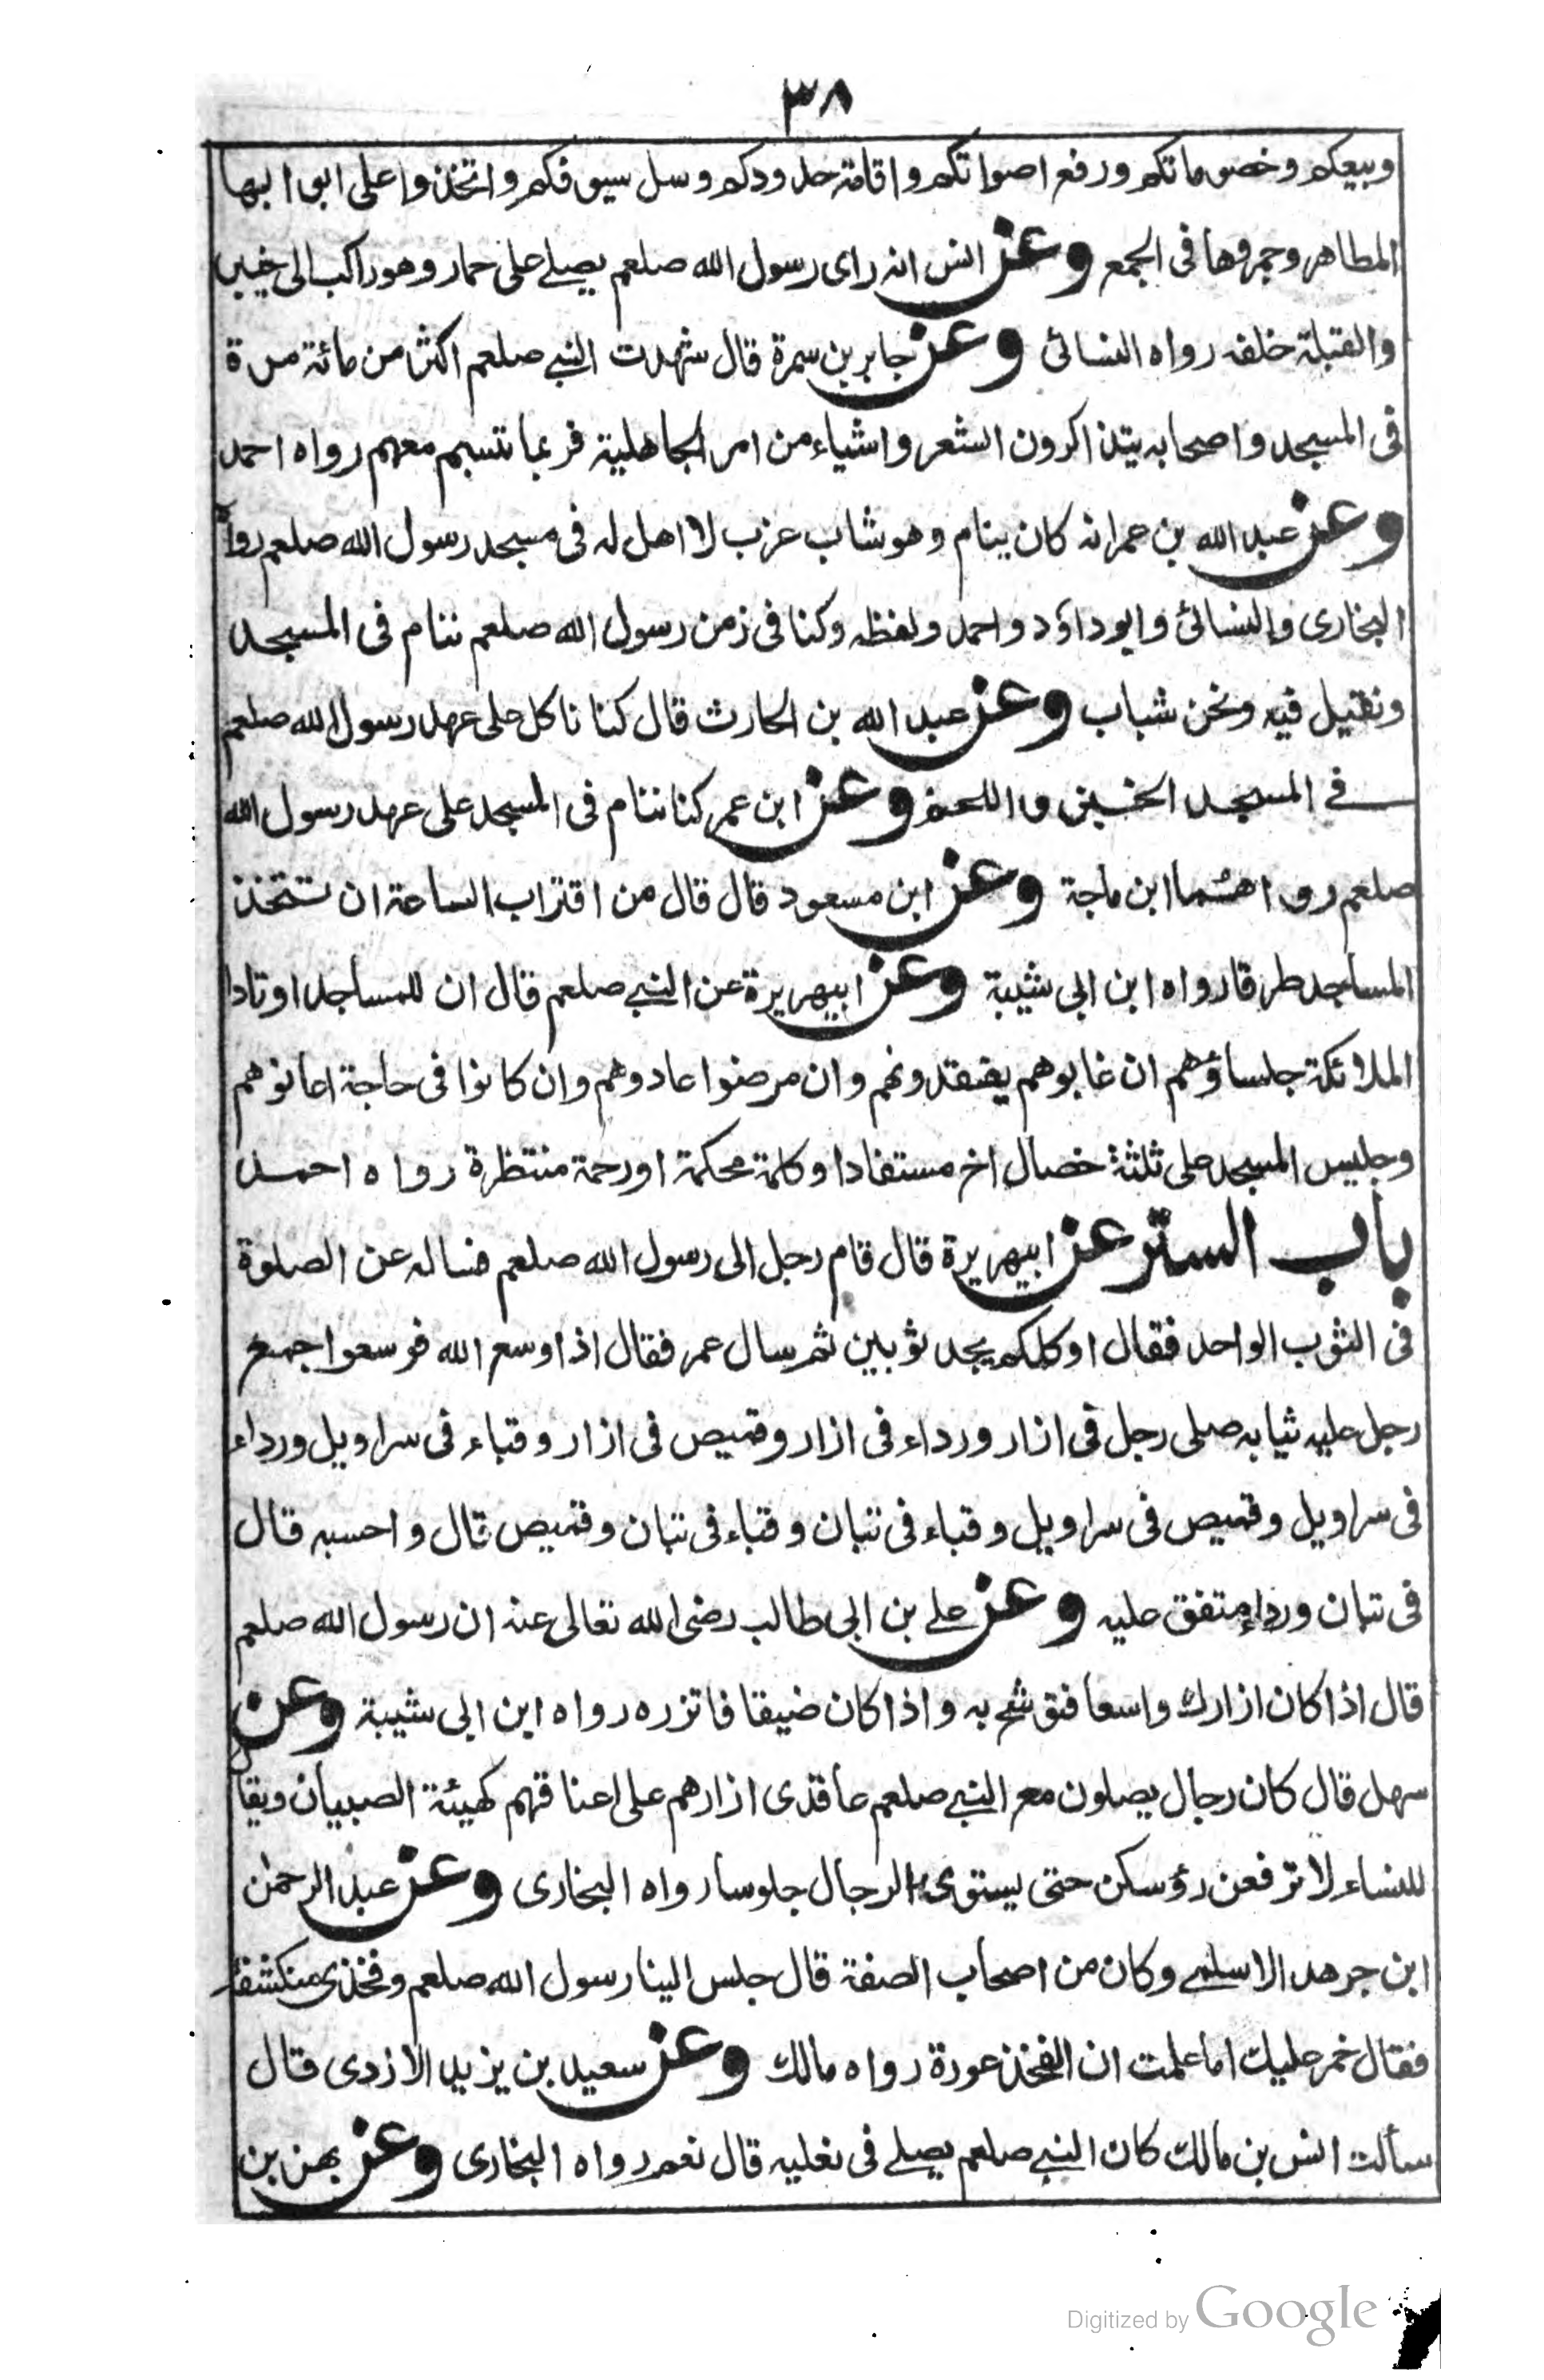 ٣٨
وبيعكم وخصوماتكم ورفع اصواتكم واقامة حدودكم وسل سيوفكم واتخذوا على ابوابها
المطاهر وجمروها فى الجمع وعن انس انه راى رسول الله صلعم يصلے على حمار وهو راكب الى خيبر
والقبلة خلفه رواه النسائى وعن جابر بن سمرة قال شهدت النبے صلعم اكثر من مائة مرة
فى المسجد واصحابه يتذاكرون الشعر واشياء من امر الجاهلية فربما تبسم معهم رواه احمد
وعن عبد الله بن عمر انه كان ينام وهو شاب عزب لا اهل له فى مسجد رسول الله صلعم رواه
البخارى والنسائى وابو داؤد واحمد ولفظه وكنا فى زمن رسول الله صلعم ننام فى المسجد
ونقيل فيه ونحن شباب وعن عبد الله بن الحارث قال كنا ناكل على عهد رسول الله صلعم
فے المسجد الخبز واللحم وعن ابن عمر كنا ننام فى المسجد على عهد رسول الله
صلعم رواهما ابن ماجة وعن ابن مسعود قال قال من اقتراب الساعة ان تتخذ
المساجد طرقا رواه ابن ابى شيبة وعن ابيهريرة عن النبے صلعم قال ان للمساجد اوتادا
الملائكة جلساؤهم ان غابوهم يفتقدونهم وان مرضوا عادوهم وان كانوا فى حاجة اعانوهم
وجليس المسجد على ثلثة خصال اخ مستفاد او كلمة محكمة او رحمة منتظرة رواه احمد
باب الستر عن ابيهريرة قال قام رجل الى رسول الله صلعم فساله عن الصلوة
فى الثوب الواحد فقال او كلكم يجد ثوبين ثم سال عمر فقال اذا وسع الله فوسعوا جمع
رجل عليه ثيابه صلى رجل فى ازار ورداء فى ازار وقميص فى ازار وقباء فى سراويل ورداء
فى سراويل وقميص فى سراويل وقباء فى تبان وقباء فى تبان وقميص قال واحسبه قال
فى تبان ورداء متفق عليه وعن علے بن ابى طالب رضى الله تعالى عنه ان رسول الله صلعم
قال اذا كان ازارك واسعا فتوشح به واذا كان ضيقا فاتزره رواه ابن ابى شيبة وعن
سهل قال كان رجال يصلون مع النبے صلعم عاقدى ازارهم على اعناقهم كهيئة الصبيان ويقال
للنساء لا ترفعن رؤسكن حتى يستوى الرجال جلوسا رواه البخارى وعن عبد الرحمن
ابن جرهد الاسلمے وكان من اصحاب الصفة قال جلس الينا رسول الله صلعم وفخذى منكشفة
فقال خمر عليك اما علمت ان الفخذ عورة رواه مالك وعن سعيد بن يزيد الازدى قال
سألت انس بن مالك كان النبے صلعم يصلے فى نعليه قال نعم رواه البخارى وعن بهز بن
Digitized by Google